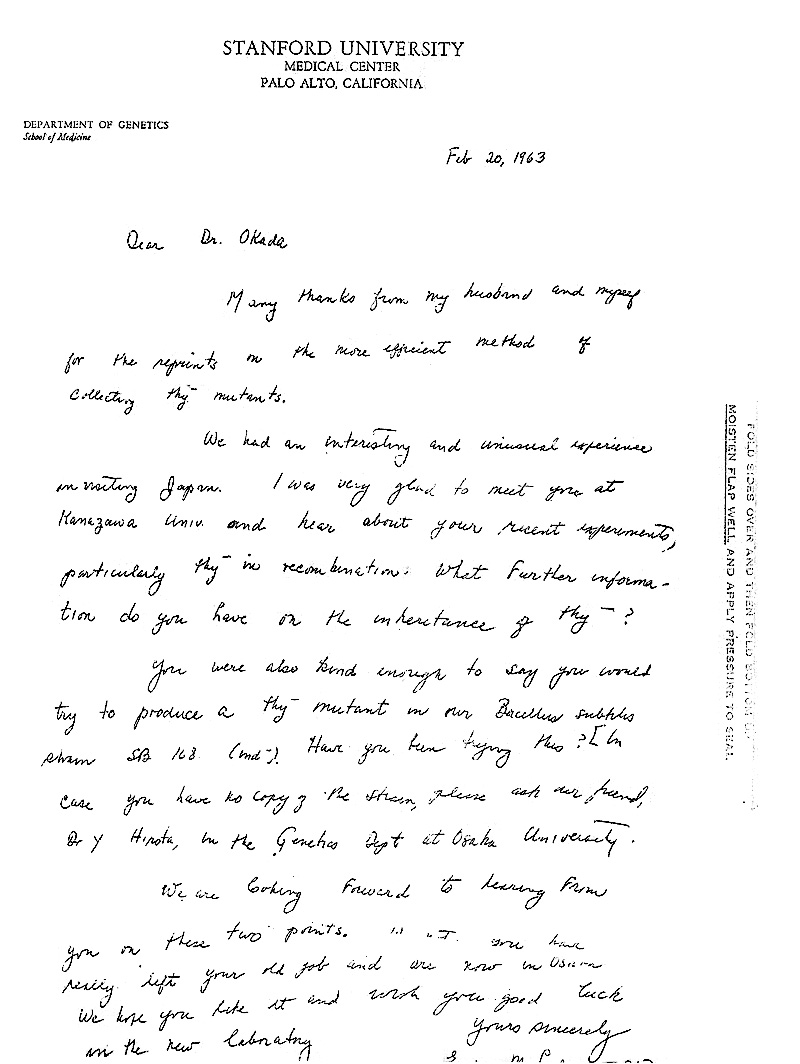 STANFORD UNIVERSITY
MEDICAL CENTER
PALO ALTO, CALIFORNIA
DEPARTMENT OF GENETICS
School of Medicine
Feb 20, 1963
Dear Dr. Okada
Many thanks from my husband and myself
for the reprints on the more efficient method of
collecting thy⁻ mutants.
We had an interesting and unusual experience
in visiting Japan. I was very glad to meet you at
Kanazawa Univ. and hear about your recent experiments,
particularly thy⁻ in recombination. What further informa-
tion do you have on the inheritance of thy⁻?
You were also kind enough to say you would
try to produce a thy⁻ mutant in our Bacillus subtilis
strain SB 168 (ind⁻). Have you been trying this? [In
case you have no copy of the strain, please ask our friend,
Dr Y Hirota, in the Genetics Dept at Osaka University.
We are looking forward to hearing from
you on these two points. you have
really left your old job and are now in Osaka
We hope you like it and wish you good luck
in the new laboratory
Yours sincerely
FOLD SIDES OVER AND THEN FOLD BOTTOM UP
MOISTEN FLAP WELL AND APPLY PRESSURE TO SEAL